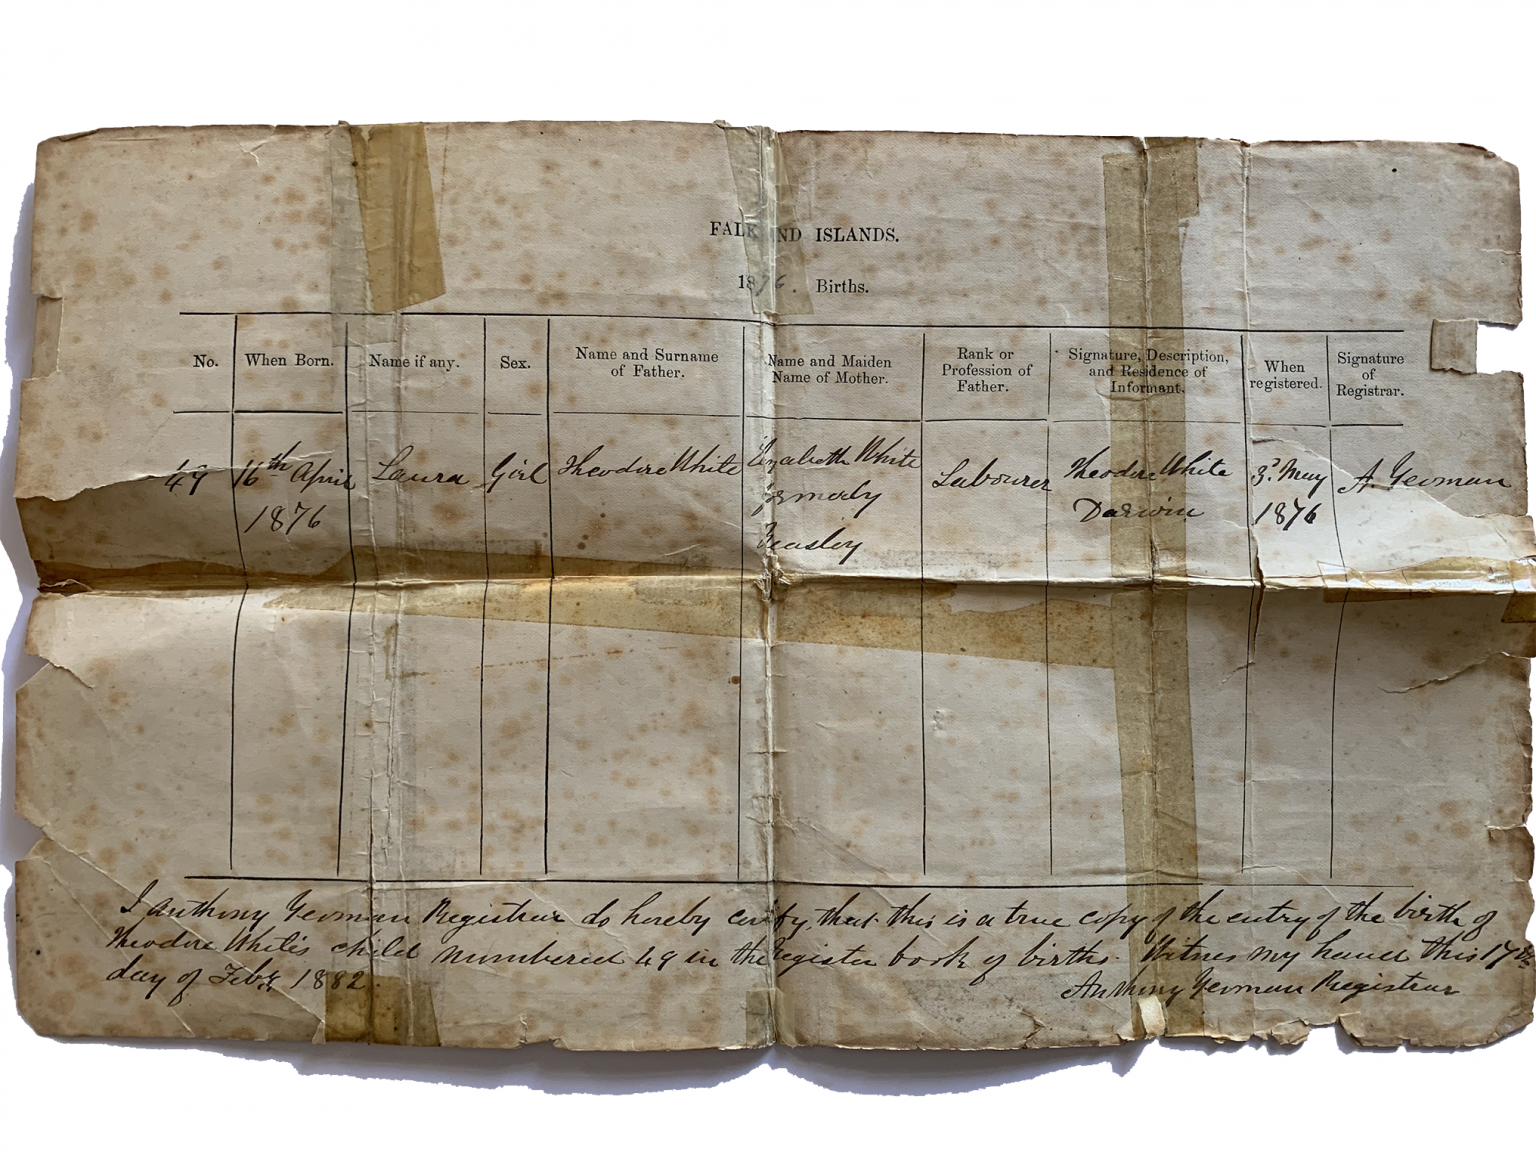 FALK ND ISLANDS.
1876. Births.
No. When Born. Name if any. Sex. Name and Surname of Father. Name and Maiden Name of Mother. Rank or Profession of Father. Signature, Description, and Residence of Informant. When registered. Signature of Registrar.
49 16th April Laura Girl Theodore White Elizabeth White Labourer Theodore White 3d May A. Yeoman
1876 formerly Darwin 1876
I Anthony Yeoman Registrar do hereby certify that this is a true copy of the entry of the birth of
Theodore White's child numbered 49 in the Register book of births. Witness my hand this 17th
day of Feby 1882.
Anthony Yeoman Registrar